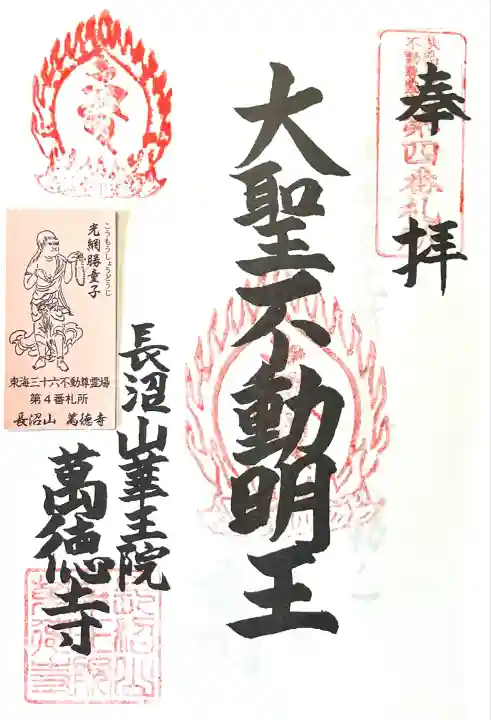 奉拝
第四番札
大聖不動明王
長沼山華王院
萬徳寺
こうもうしょうどうじ
光網勝童子
東海三十六不動尊霊場
第4番札所
長沼山 萬徳寺